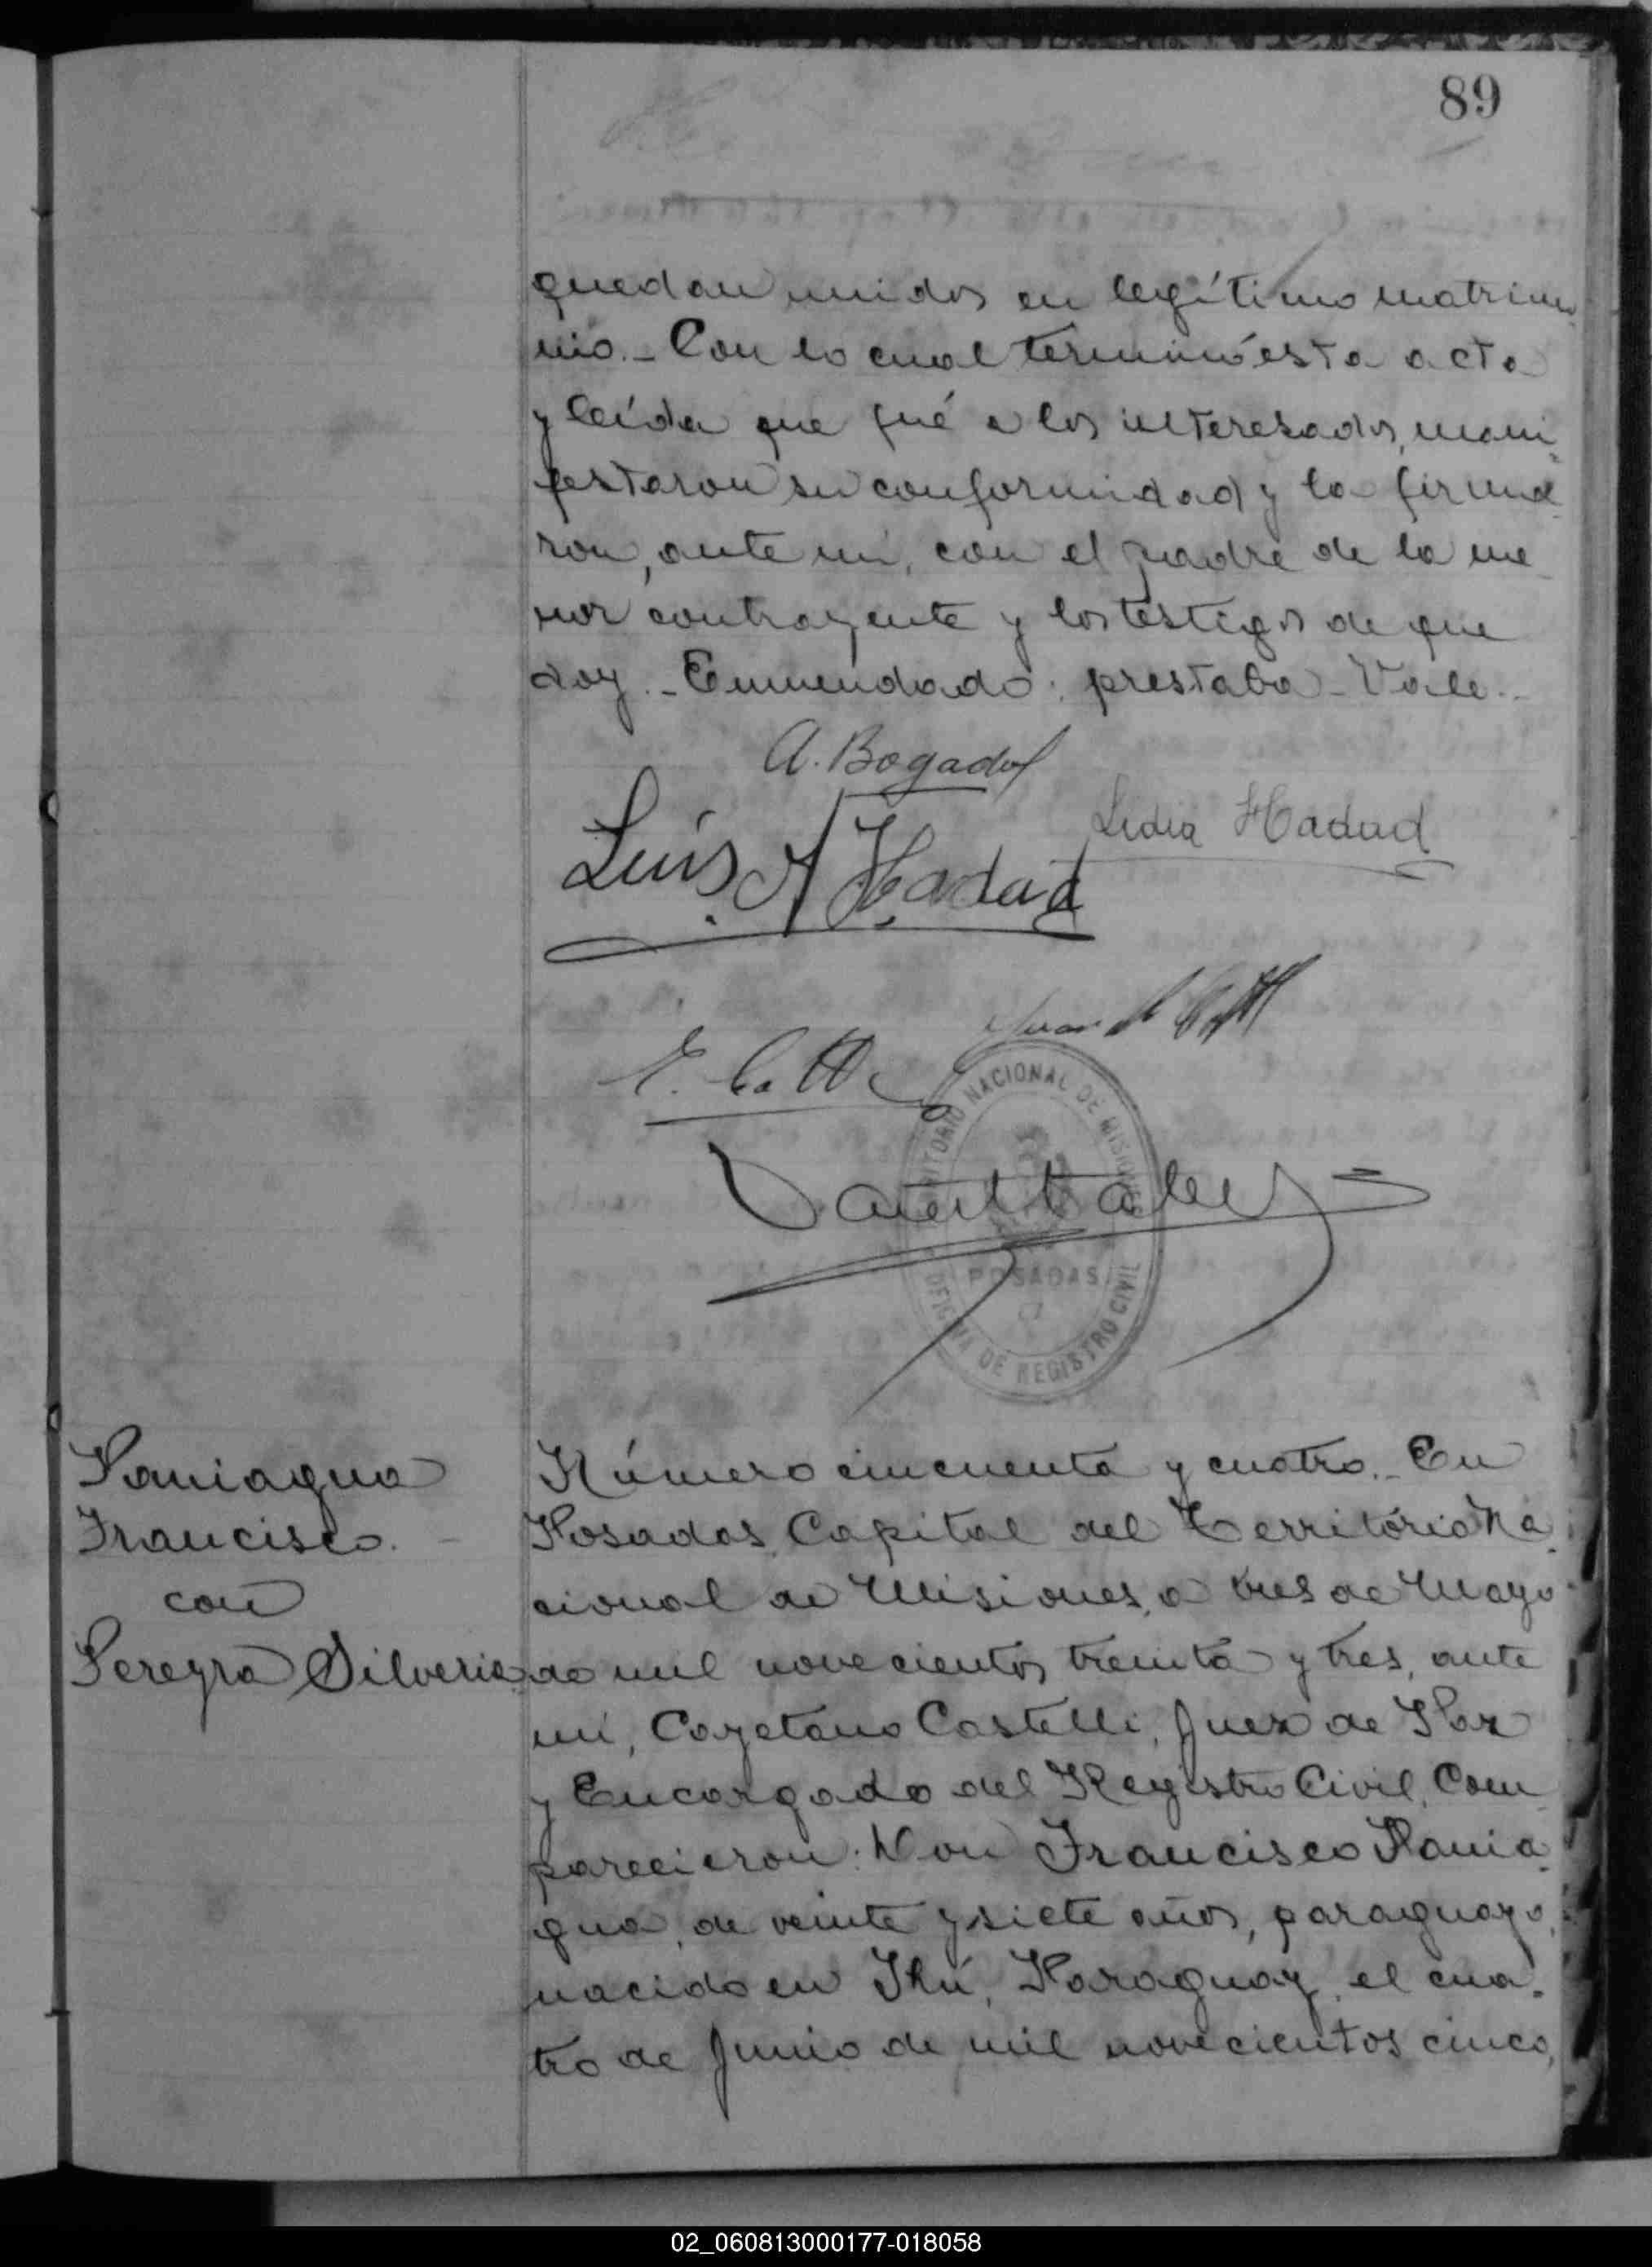 89
quedan unidos en legítimo matrimo
nio.- Con lo cual terminó esta acta
y leída que fué a los interesados, mani-
festaron su conformidad y la firma-
ron, ante mí, con el padre de la me
nor contrayente y los testigos de que
doy.- Enmendado: prestaba - Vale.-
A. Bogado
Lidia Hadad
Luís A Hadad
Juan
E.
TERRITORIO NACIONAL DE MISIONES
POSADAS
OFICINA DE REGISTRO CIVIL
Paniagua
Francisco.
con
Pereyra Silveria
Número cincuenta y cuatro.- En
Posadas, Capital del Território Na-
cional de Misiones, a tres de Mayo
de mil novecientos treinta y tres, ante
mí, Cayetano Castelli, Juez de Paz
y Encargado del Registro Civil, Com
parecieron: Don Francisco Pania-
gua, de veinte y siete años, paraguayo,
nacido en Ihú, Paraguay, el cua-
tro de Junio de mil novecientos cinco,
02_060813000177-018058